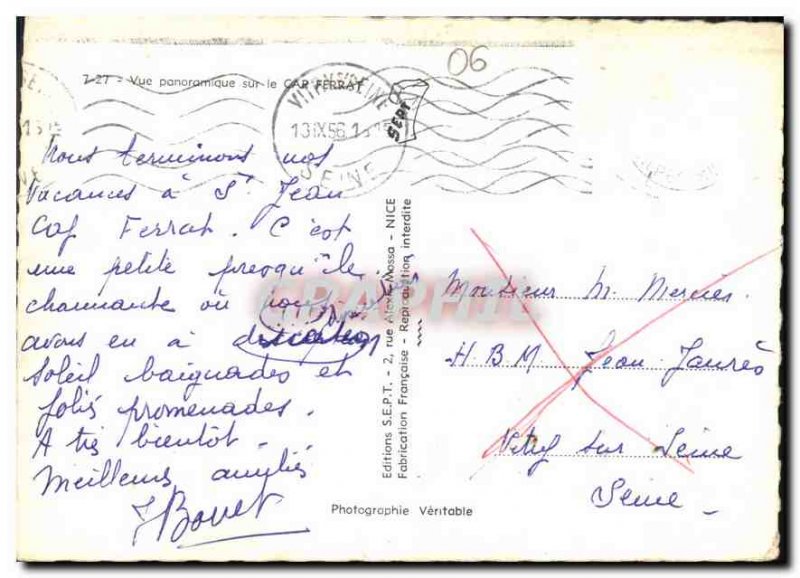 06
7-27 - Vue panoramique sur le CAP FERRAT
13 IX 56
SEINE
SEPT
Nous terminons nos
vacances à St Jean
Cap Ferrat. C'est
une petite presqu'île
charmante où nous
avons eu à
soleil baignades et
jolies promenades.
A très bientôt.
Meilleures amitiés
J Bouet
Editions S.E.P.T. - 2, rue Alexis Mossa - NICE
Fabrication Française - Reproduction interdite
Monsieur M. Mercies.
H.B.M. Jean Jaurès
Vitry sur Seine
Seine -
Photographie Véritable